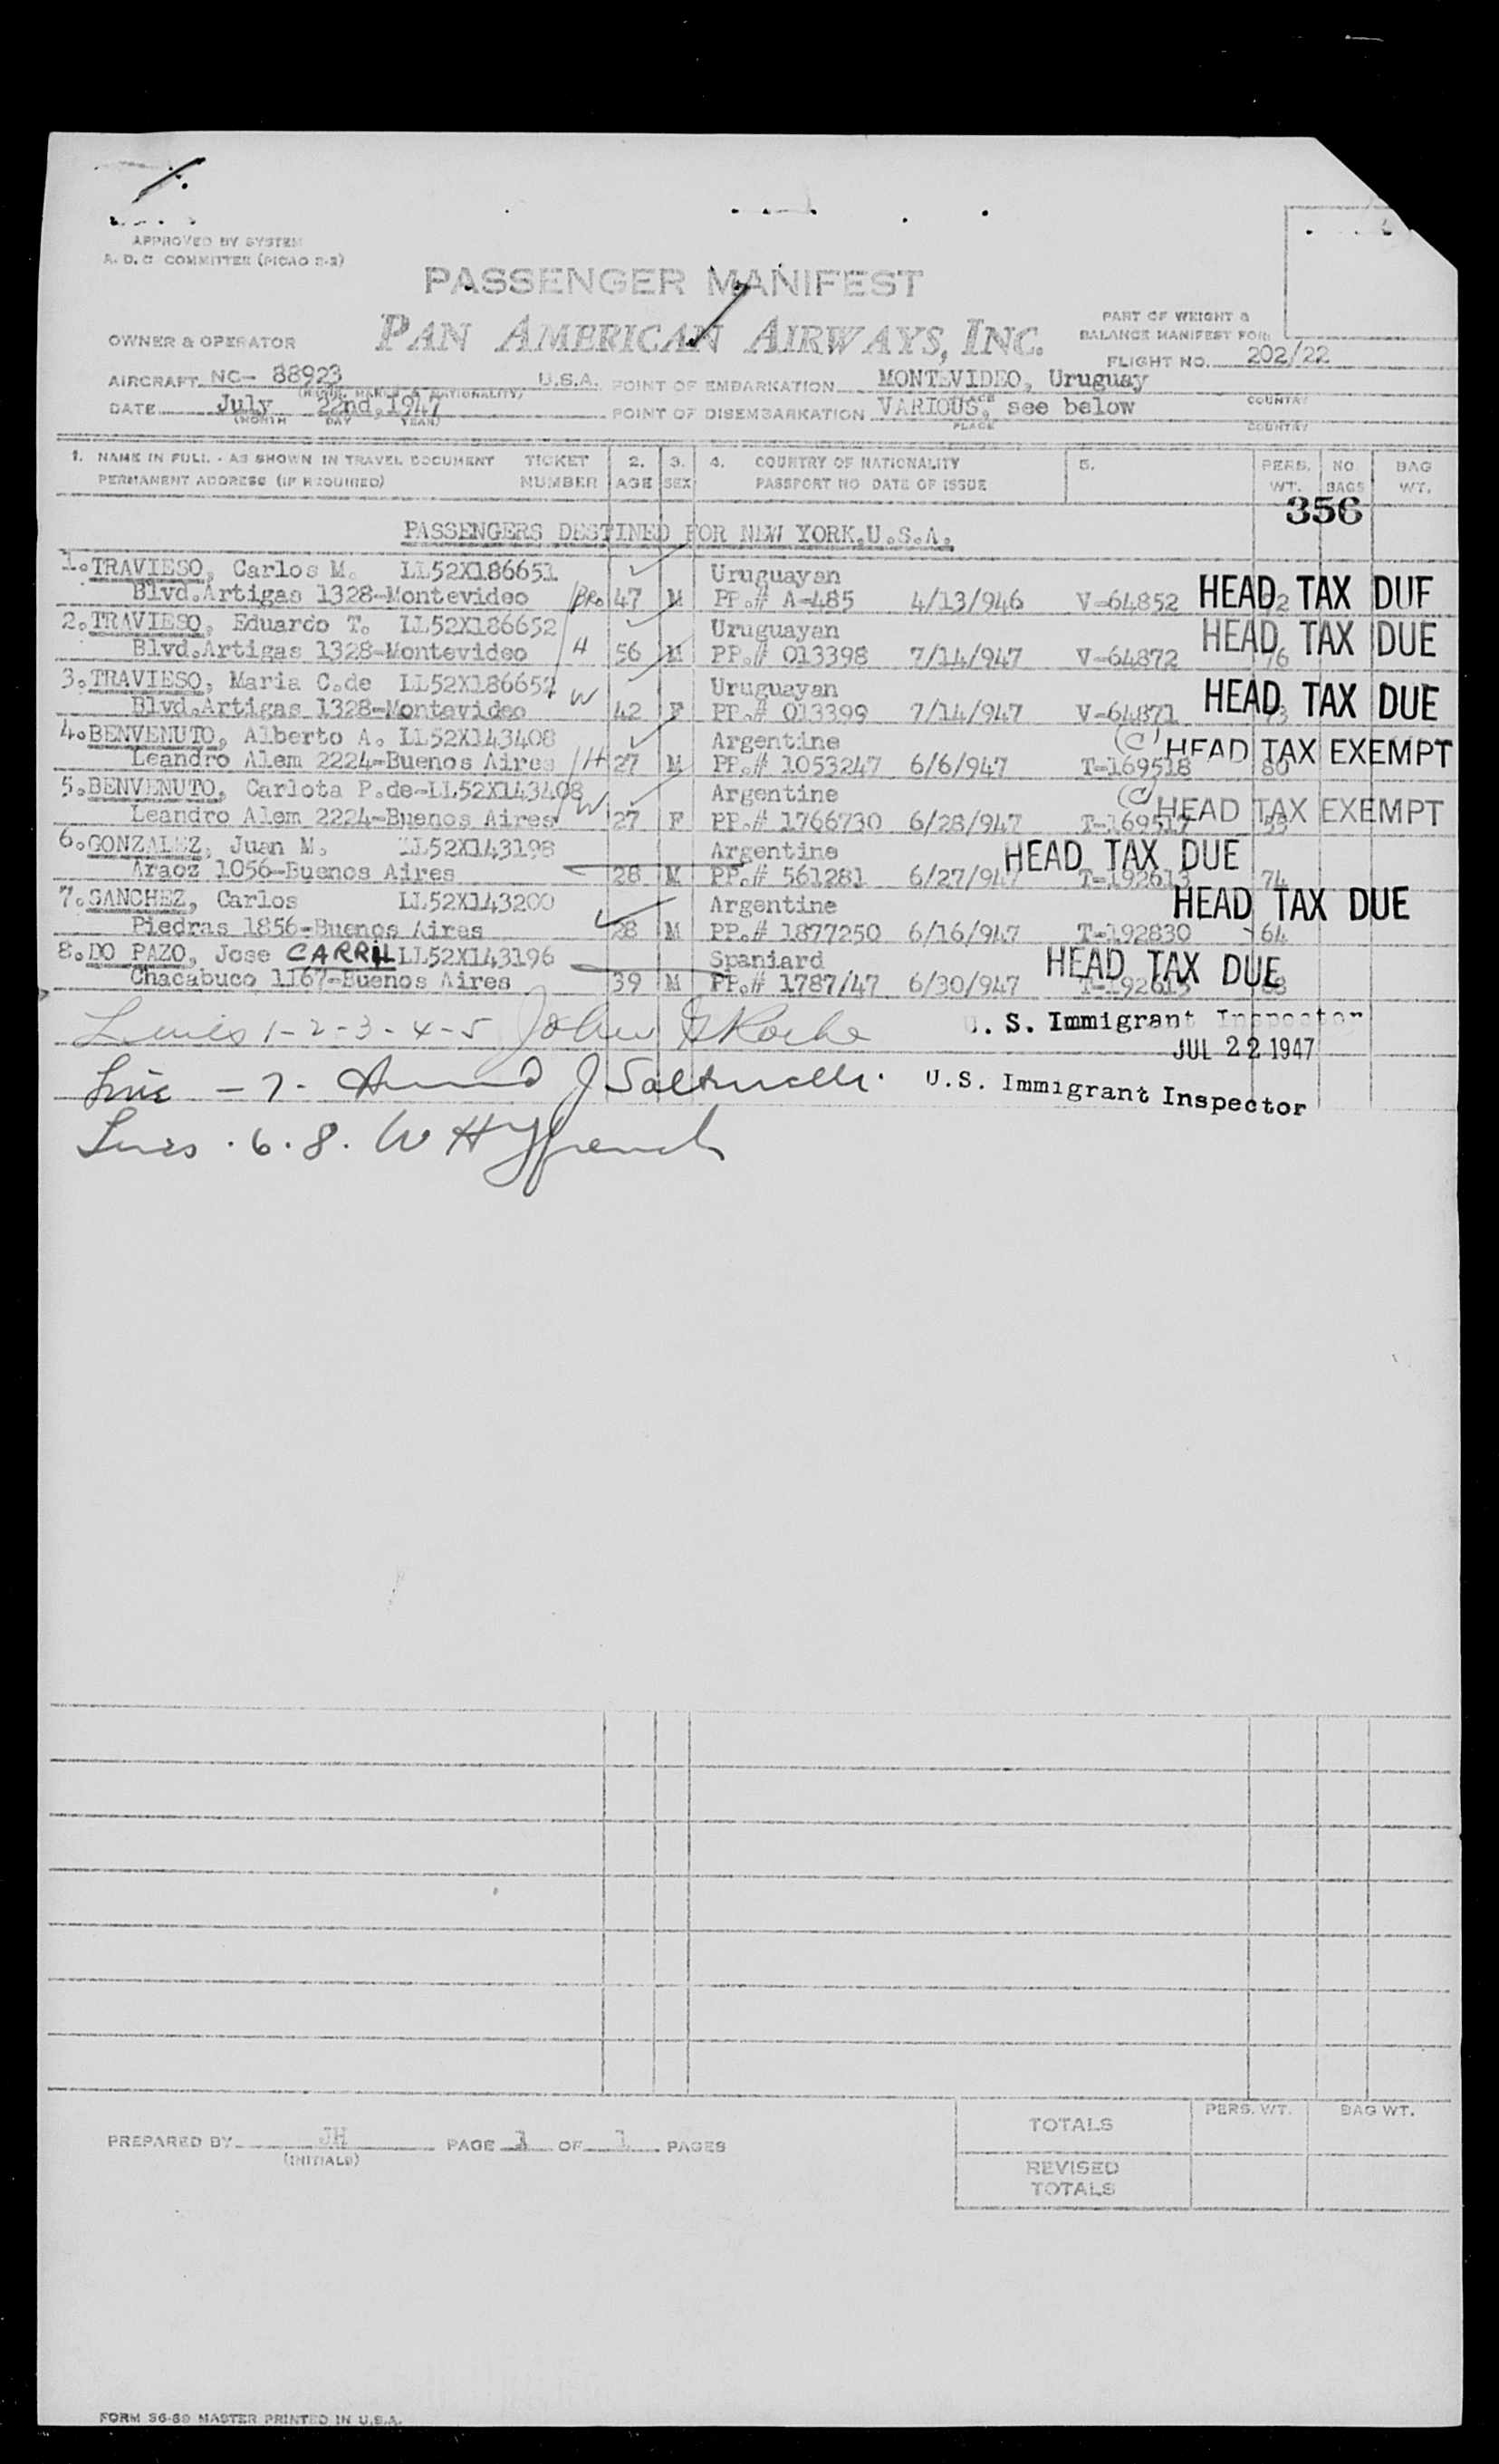 APPROVED BY SYSTEM
A. D. C COMMITTEE (PICAO S-2)
PASSENGER MANIFEST
PAN AMERICAN AIRWAYS, INC.
PART OF WEIGHT &
BALANCE MANIFEST FOR:
OWNER & OPERATOR
FLIGHT NO. 202/22
AIRCRAFT NC- 88923 U.S.A. POINT OF EMBARKATION MONTEVIDEO, Uruguay
DATE July 22nd, 1947 POINT OF DISEMBARKATION VARIOUS, see below
(MONTH DAY YEAR) PLACE COUNTRY
1. NAME IN FULL - AS SHOWN IN TRAVEL DOCUMENT TICKET 2. 3. 4. COUNTRY OF NATIONALITY 5. PERS. NO. BAG
PERMANENT ADDRESS (IF REQUIRED) NUMBER AGE SEX PASSPORT NO DATE OF ISSUE WT. BAGS WT.
356
PASSENGERS DESTINED FOR NEW YORK,U.S.A.
1.TRAVIESO, Carlos M. LL52X186651 Uruguayan
Blvd.Artigas 1328-Montevideo Bro 47 M PP.# A-485 4/13/946 V-64852 HEAD TAX DUE
2.TRAVIESO, Eduardo T. LL52X186652 Uruguayan HEAD TAX DUE
Blvd.Artigas 1328-Montevideo H 56 M PP.# 013398 7/14/947 V-64872 76
3.TRAVIESO, Maria C.de LL52X186652 Uruguayan HEAD TAX DUE
Blvd.Artigas 1328-Montevideo W 42 F PP.# 013399 7/14/947 V-64871
4.BENVENUTO, Alberto A. LL52X143408 Argentine (C) HEAD TAX EXEMPT
Leandro Alem 2224-Buenos Aires H 27 M PP.# 1053247 6/6/947 T-169518 80
5.BENVENUTO, Carlota P.de-LL52X143408 Argentine (C) HEAD TAX EXEMPT
Leandro Alem 2224-Buenos Aires W 27 F PP.# 1766730 6/28/947 T-169517
6.GONZALEZ, Juan M. LL52X143198 Argentine HEAD TAX DUE
Araoz 1056-Buenos Aires 28 M PP.# 561281 6/27/947 T-192613 74
7.SANCHEZ, Carlos LL52X143200 Argentine HEAD TAX DUE
Piedras 1856-Buenos Aires 28 M PP.# 1877250 6/16/947 T-192830 64
8.DO PAZO, Jose CARRIL LL52X143196 Spaniard HEAD TAX DUE
Chacabuco 1167-Buenos Aires 39 M PP.# 1787/47 6/30/947
Lines 1-2-3-4-5 John Roche U.S. Immigrant Inspector
JUL 22 1947
Line - 7 - J U.S. Immigrant Inspector
Lines . 6 . 8 . W H
PREPARED BY JH PAGE 1 OF 1 PAGES
(INITIALS)
PERS. WT. BAG WT.
TOTALS
REVISED
TOTALS
FORM 36-69 MASTER PRINTED IN U.S.A.